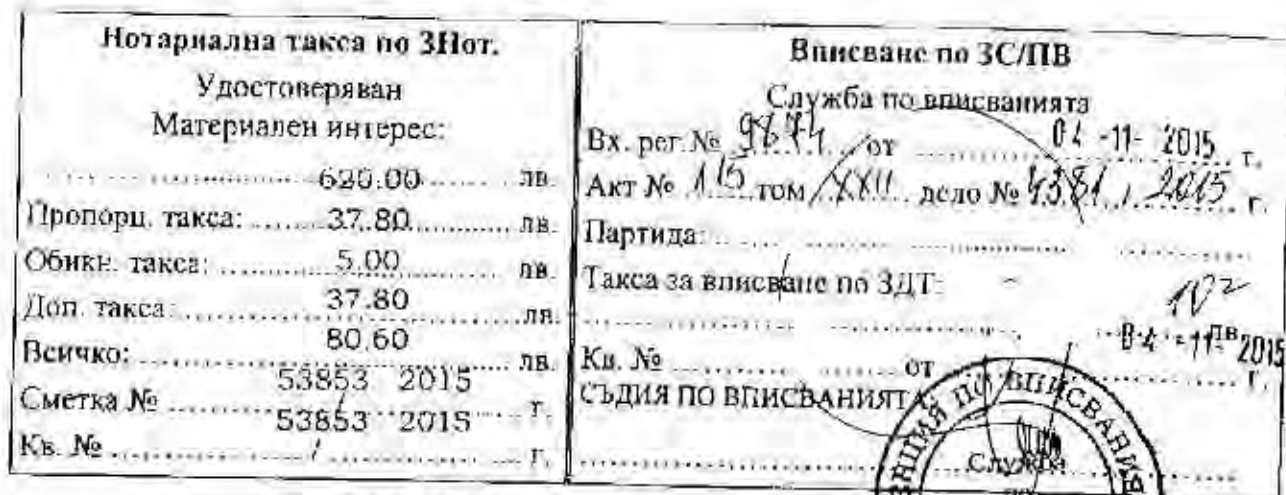 Нотариална такса по ЗНот.
Удостоверяван
Материален интерес:
620.00 лв.
Пропорц. такса: 37.80 лв.
Обикн. такса: 5.00 лв.
Доп. такса: 37.80 лв.
Всичко: 80.60 лв.
Сметка № 53853 / 2015 г.
Кв. № 53853 / 2015 г.
Вписване по ЗС/ПВ
Служба по вписванията
Вх. рег. № от 04 -11- 2015 г.
Акт № 115 том XXII дело № 4381 / 2015 г.
Партида:
Такса за вписване по ЗДТ:
лв.
Кв. № от 04 -11- 2015 г.
СЪДИЯ ПО ВПИСВАНИЯТА
ПО ВПИСВАНИЯ
Служба
по